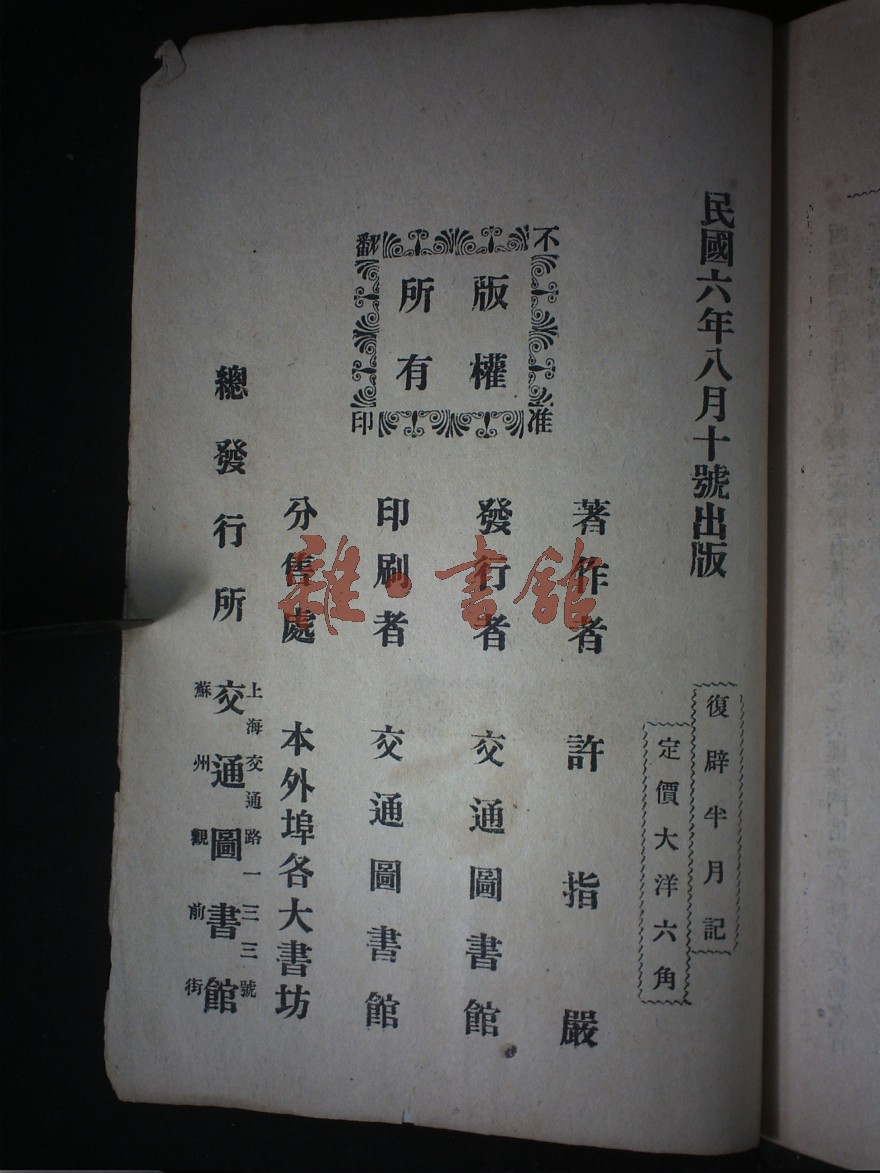 民國六年八月十號出版
復辟半月記
定價大洋六角
著作者 許指嚴
不准翻印
版權
所有
發行者 交通圖書館
印刷者 交通圖書館
分售處 本外埠各大書坊
總發行所 交通圖書館
上海交通路一三三號
蘇州觀前街
雜·書館